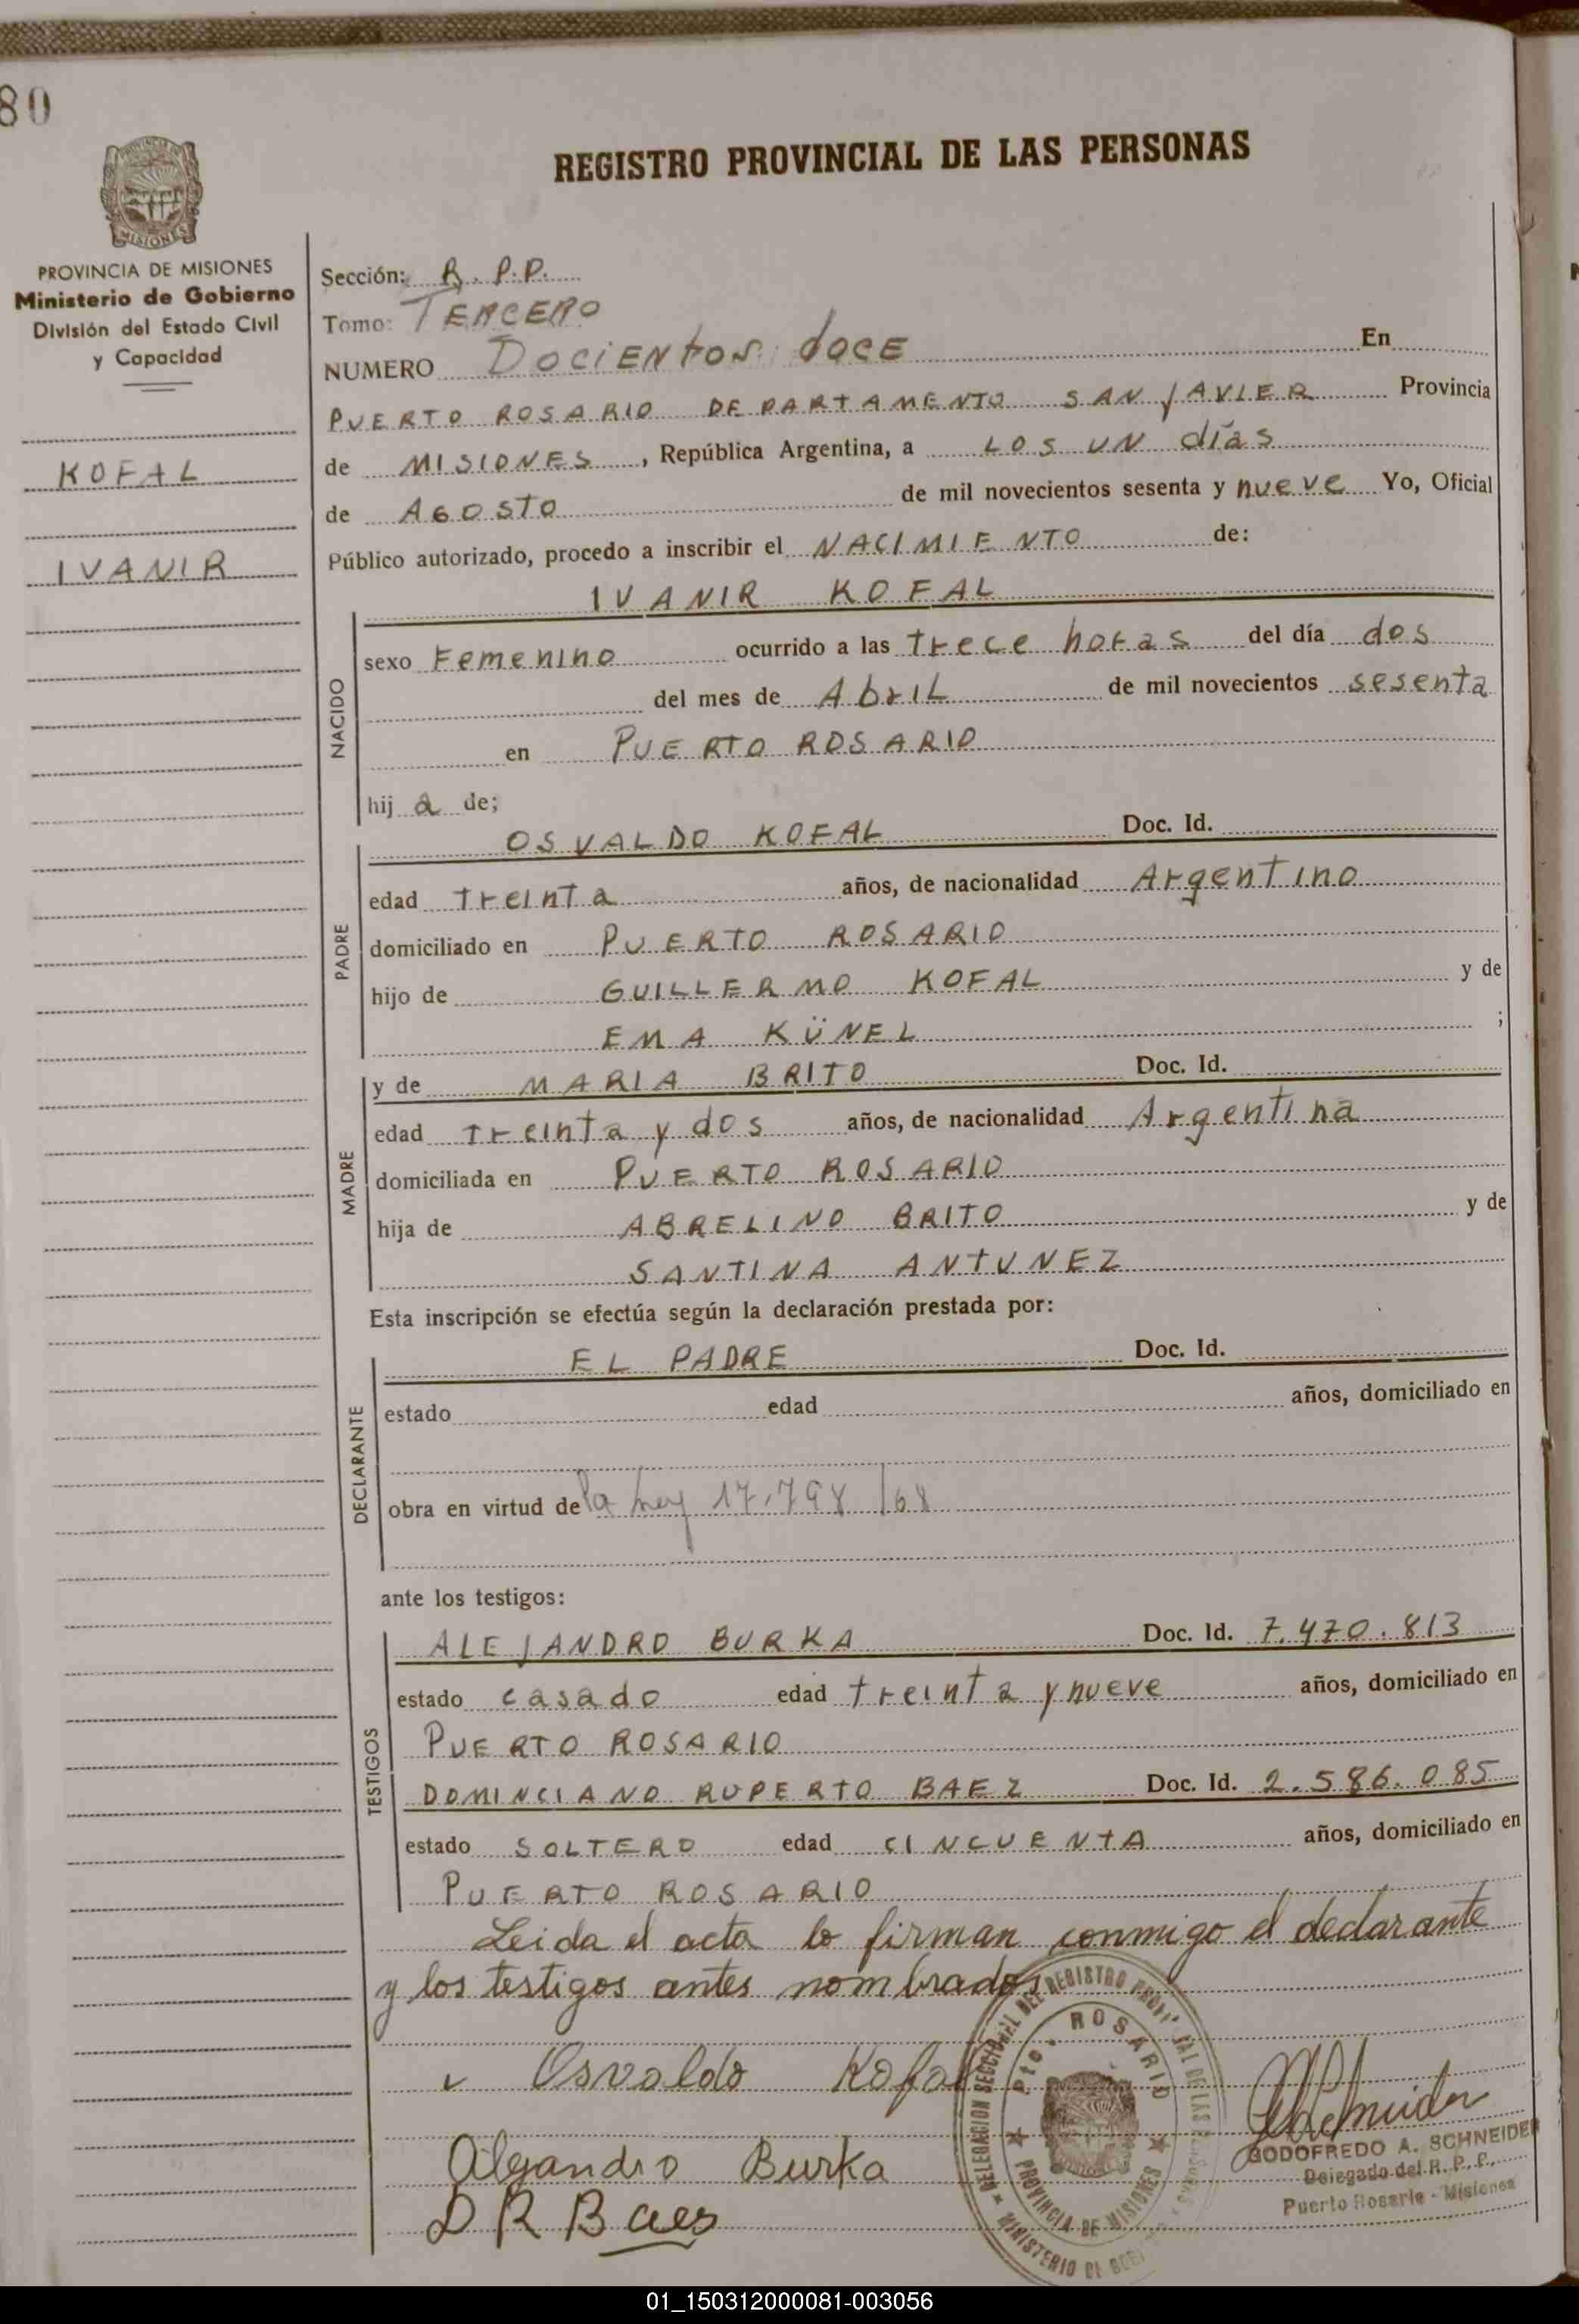 80
REGISTRO PROVINCIAL DE LAS PERSONAS
MISIONES
PROVINCIA DE MISIONES
Ministerio de Gobierno
División del Estado Civil
y Capacidad
KOFAL
IVANIR
Sección: R. P.P.
Tomo: TERCERO
NUMERO DOCIENTOS doce En
PUERTO ROSARIO DEPARTAMENTO SAN JAVIER Provincia
de MISIONES, República Argentina, a LOS UN días
de AGOSTO de mil novecientos sesenta y nueve Yo, Oficial
Público autorizado, procedo a inscribir el NACIMIENTO de:
IVANIR KOFAL
NACIDO
sexo Femenino ocurrido a las trece horas del día dos
del mes de Abril de mil novecientos sesenta
en PUERTO ROSARIO
hija de;
PADRE
OSVALDO KOFAL Doc. Id.
edad treinta años, de nacionalidad Argentino
domiciliado en PUERTO ROSARIO
hijo de GUILLERMO KOFAL y de
EMA KÜNEL ;
MADRE
y de MARIA BRITO Doc. Id.
edad treinta y dos años, de nacionalidad Argentina
domiciliada en PUERTO ROSARIO
hija de ABRELINO BRITO y de
SANTINA ANTUNEZ
Esta inscripción se efectúa según la declaración prestada por:
DECLARANTE
EL PADRE Doc. Id.
estado edad años, domiciliado en
obra en virtud de la Ley 17.798/68
ante los testigos:
TESTIGOS
ALEJANDRO BURKA Doc. Id. 7.470.813
estado casado edad treinta y nueve años, domiciliado en
PUERTO ROSARIO
DOMINCIANO RUPERTO BAEZ Doc. Id. 2.586.085
estado SOLTERO edad CINCUENTA años, domiciliado en
PUERTO ROSARIO
Leida el acta lo firman conmigo el declarante
y los testigos antes nombrados
Osvaldo Kofal
Alejandro Burka
D R Baes
DELEGACION SECCIONAL DEL REGISTRO
Pto. ROSARIO
PROVINCIA DE MISIONES
MINISTERIO DE
GODOFREDO A. SCHNEIDER
Delegado del R. P. P.
Puerto Rosario - Misiones
01_150312000081-003056